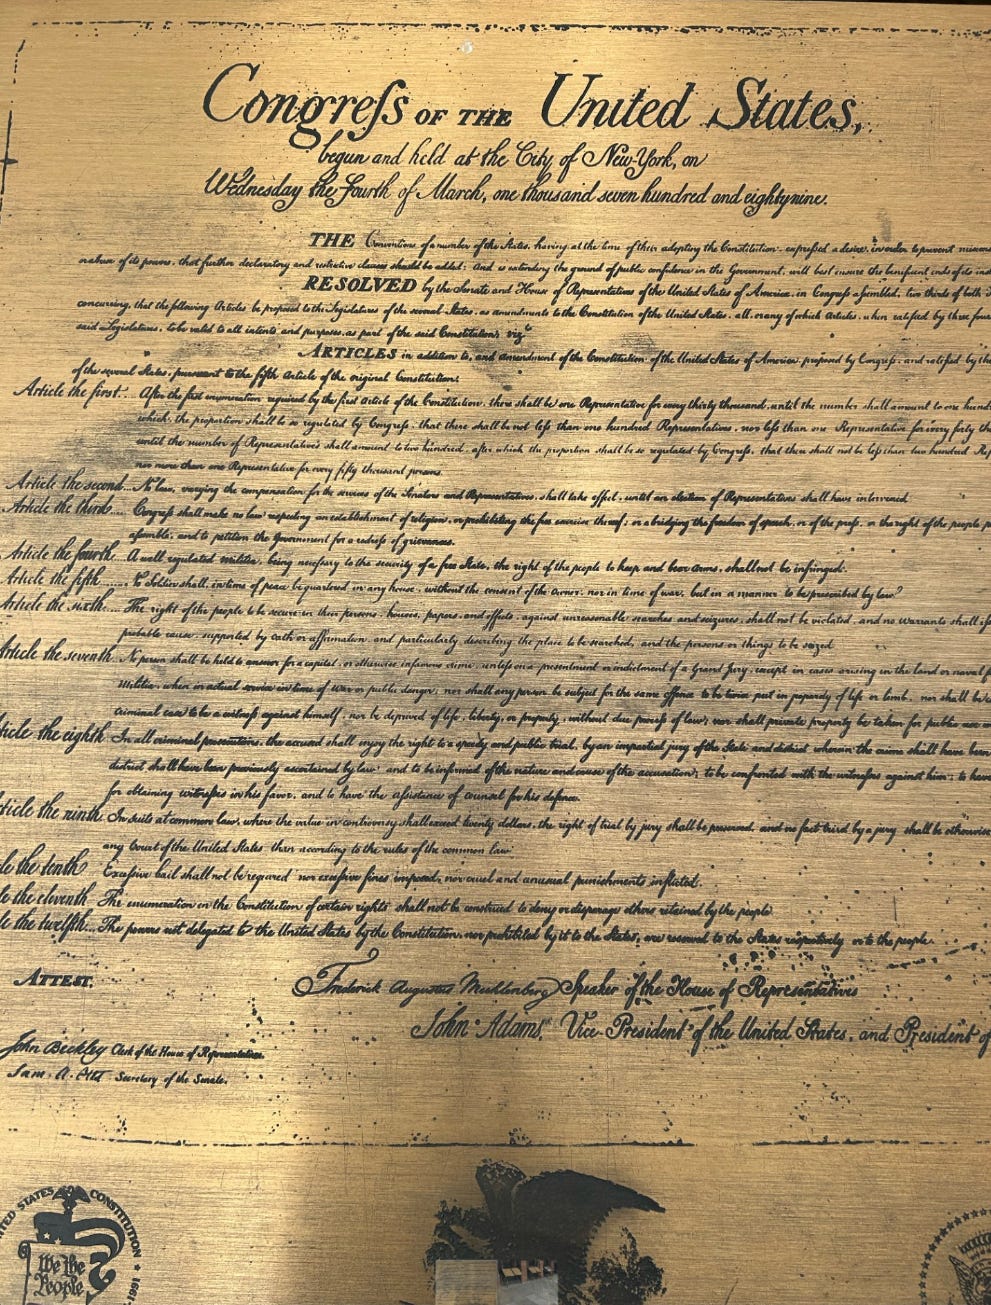 Congreſs OF THE United States,
begun and held at the City of New-York, on
Wednesday the Fourth of March, one thousand seven hundred and eightynine.
THE Conventions of a number of the States, having at the time of their adopting the Constitution, expreſsed a desire, in order to prevent
or abuse of its powers, that further declaratory and restrictive clauses should be added: And as extending the ground of public confidence in the Government, will best ensure the beneficent ends of its
RESOLVED by the Senate and House of Representatives of the United States of America, in Congreſs aſsembled, two thirds of both
concurring, that the following Articles be proposed to the Legislatures of the several States, as amendments to the Constitution of the United States, all, or any of which Articles, when ratified by three
said Legislatures, to be valid to all intents and purposes, as part of the said Constitution; vizt
ARTICLES in addition to, and amendment of the Constitution of the United States of America, proposed by Congreſs, and ratified by the
of the several States, pursuant to the fifth Article of the original Constitution.
Article the first. After the first enumeration required by the first Article of the Constitution, there shall be one Representative for every thirty thousand, until the number shall amount to one
which, the proportion shall be so regulated by Congreſs, that there shall be not leſs than one hundred Representatives, nor leſs than one Representative for every forty
until the number of Representatives shall amount to two hundred, after which the proportion shall be so regulated by Congreſs, that there shall not be leſs than two hundred
nor more than one Representative for every fifty thousand persons.
Article the second... No law, varying the compensation for the services of the Senators and Representatives, shall take effect, until an election of Representatives shall have intervened.
Article the third.... Congreſs shall make no law respecting an establishment of religion, or prohibiting the free exercise thereof; or abridging the freedom of speech, or of the preſs, or the right of the people
aſsemble, and to petition the Government for a redreſs of grievances.
Article the fourth... A well regulated militia, being neceſsary to the security of a free State, the right of the people to keep and bear arms, shall not be infringed.
Article the fifth ...... No Soldier shall, in time of peace be quartered in any house, without the consent of the owner, nor in time of war, but in a manner to be prescribed by law.
Article the sixth.... The right of the people to be secure in their persons, houses, papers, and effects, against unreasonable searches and seizures, shall not be violated, and no warrants shall
probable cause, supported by oath or affirmation, and particularly describing the place to be searched, and the persons or things to be seized
Article the seventh. No person shall be held to answer for a capital, or otherwise infamous crime, unleſs on a presentment or indictment of a Grand Jury, except in cases arising in the land or naval
Militia, when in actual service in time of war or public danger; nor shall any person be subject for the same offence to be twice put in jeopardy of life or limb, nor shall be
criminal case to be a witneſs against himself, nor be deprived of life, liberty, or property, without due proceſs of law; nor shall private property be taken for public use
ticle the eighth. In all criminal prosecutions, the accused shall enjoy the right to a speedy and public trial, by an impartial jury of the State and district wherein the crime shall have been
district shall have been previously ascertained by law and to be informed of the nature and cause of the accusation; to be confronted with the witneſses against him; to have
for obtaining witneſses in his favor, and to have the aſsistance of counsel for his defence.
ticle the ninth. In suits at common law, where the value in controversy shall exceed twenty dollars, the right of trial by jury shall be preserved, and no fact tried by a jury shall be otherwise
any Court of the United States than according to the rules of the common law
le the tenth Exceſsive bail shall not be required nor exceſsive fines imposed, nor cruel and unusual punishments inflicted.
le the eleventh. The enumeration in the Constitution of certain rights shall not be construed to deny or disparage others retained by the people
le the twelfth... The powers not delegated to the United States by the Constitution, nor prohibited by it to the States, are reserved to the States respectively or to the people.
ATTEST,
Frederick Augustus Muhlenberg Speaker of the House of Representatives
John Adams, Vice-President of the United States, and President of
John Beckley Clerk of the House of Representatives.
Sam. A. Otis Secretary of the Senate.
TED STATES CONSTITUTION
We the
People
1991